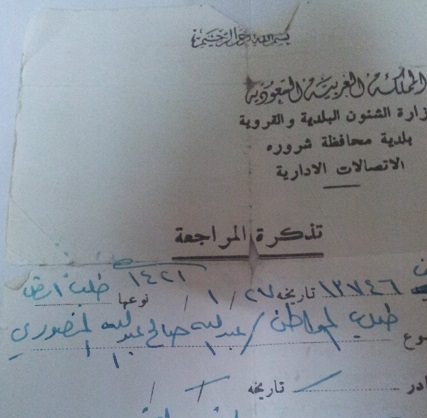 بسم الله الرحمن الرحيم
المملكة العربية السعودية
زارة الشئون البلدية والقروية
بلدية محافظة شروره
الاتصالات الادارية
تذكرة المراجعة
١٢٧٤٦ تاريخه ٢٧ / ١ / ١٤٢١ نوعها طلب ارض
وع طلب المواطن / عبدالله صالح عبدالله المنصوري
ادر / تاريخه / /